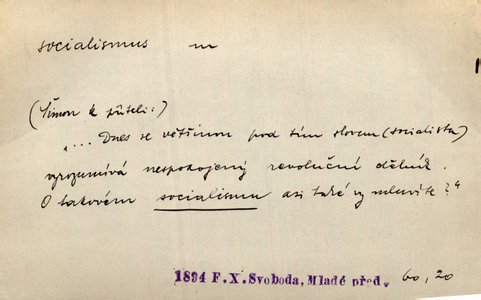 socialismus m
(Šimon k příteli:)
"... Dnes se většinou pod tím slovem (socialista)
vyrozumívá nespokojený revoluční dělník.
O takovém socialismu asi také vy mluvíte?"
1894 F. X. Svoboda, Mladé před. 60, 20